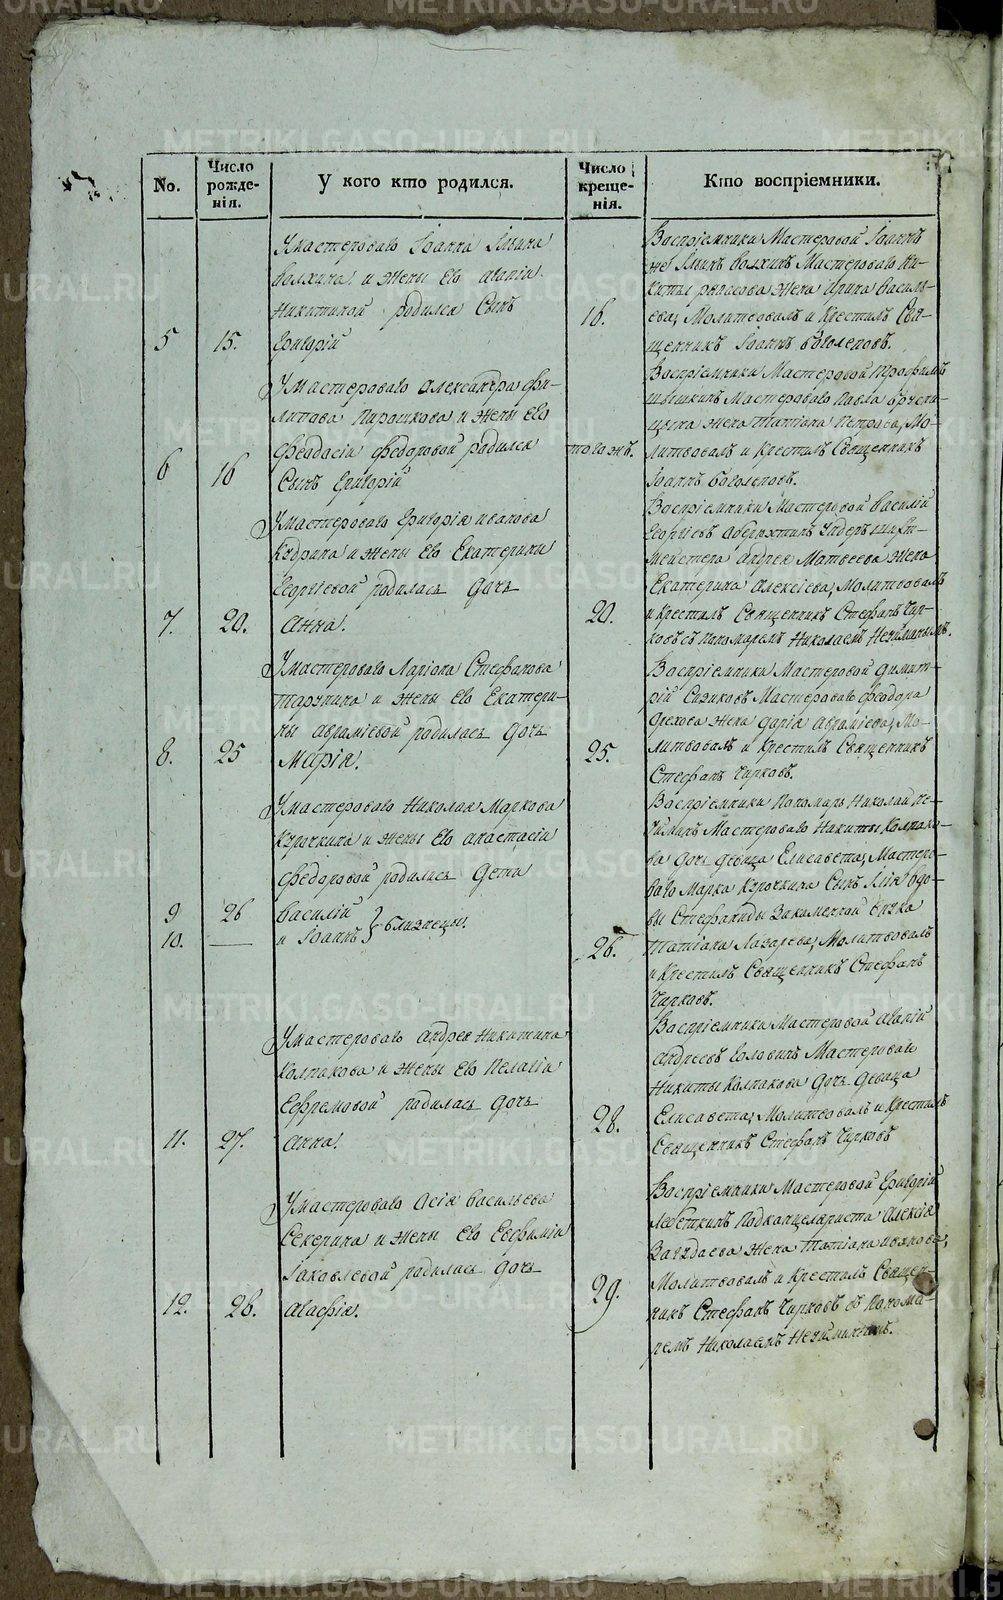 No.
Число рожде-нія.
У кого кто родился.
Число креще-нія.
Кто воспріемники.
У мастероваго Іоанна Ильина
Волхина и жены Его
Никитиной родился Сынъ
5 15. Григорій
16.
Воспріемники Мастеровой Іоаннъ
же Ильинъ Волхинъ Мастероваго Ни-
киты жена Ирина Василь-
ева, Молитвовалъ и Крестилъ Свя-
щенникъ Іоаннъ Боголеповъ.
У мастероваго Александра Фи-
липова Пирошкова и жены Его
Феодосіи Федоровой родился
6 16 Сынъ Григорій
того жъ.
Воспріемники Мастеровой Трофимъ
Мастероваго Павла
жена Татіана Петрова, Мо-
литвовалъ и Крестилъ Священникъ
Іоаннъ Боголеповъ.
У мастероваго Григорія иванова
Кудрина и жены Его Екатерины
Георгіевой родилась дочь
7. 20. Анна.
20.
Воспріемники Мастеровой Василій
Георгіевъ Ундеръ шихт-
мейстера Андрея Матвеева жена
Екатерина Алексіева, Молитвовалъ
и Крестилъ Священникъ Стефанъ Чир-
ковъ съ пономаремъ Николаемъ
У мастероваго Ларіона Стефанова
и жены Его Екатери-
ны Авраміевой родилась дочь
8. 25 Марія.
25.
Воспріемники Мастеровой Димит-
рій Сизиковъ Мастероваго Феодора
жена Дарія Авраміева, Мо-
литвовалъ и Крестилъ Священникъ
Стефанъ Чирковъ.
У мастероваго Николая Маркова
Курочкина и жены Его Анастасіи
Федоровой родились дети
9 26 Василій
10. — и Іоаннъ } близнецы.
26.
Воспріемники Пономарь Николай
Мастероваго Никиты Колпако-
ва дочь девица Елисавета, Мастеро-
ваго Марка Курочкина Сынъ Илія вдо-
вы Стефаниды
Татіана Лазарева, Молитвовалъ
и Крестилъ Священникъ Стефанъ
Чирковъ.
У мастероваго Андрея Никитина
Колпакова и жены Его Пелагіи
Ефремовой родилась дочь
11. 27. Анна.
28.
Воспріемники Мастеровой
Андреевъ Головинъ Мастероваго
Никиты Колпакова дочь девица
Елисавета, Молитвовалъ и Крестилъ
Священникъ Стефанъ Чирковъ
У мастероваго Осія Васильева
Секерина и жены Его Евфиміи
Іаковлевой родилась дочь
12. 28. Агафія.
29.
Воспріемники Мастеровой Григорій
Подканцеляриста Алексія
жена Татіана иванова,
Молитвовалъ и Крестилъ Священ-
никъ Стефанъ Чирковъ съ Понома-
ремъ Николаемъ
METRIKI.GASO-URAL.RU